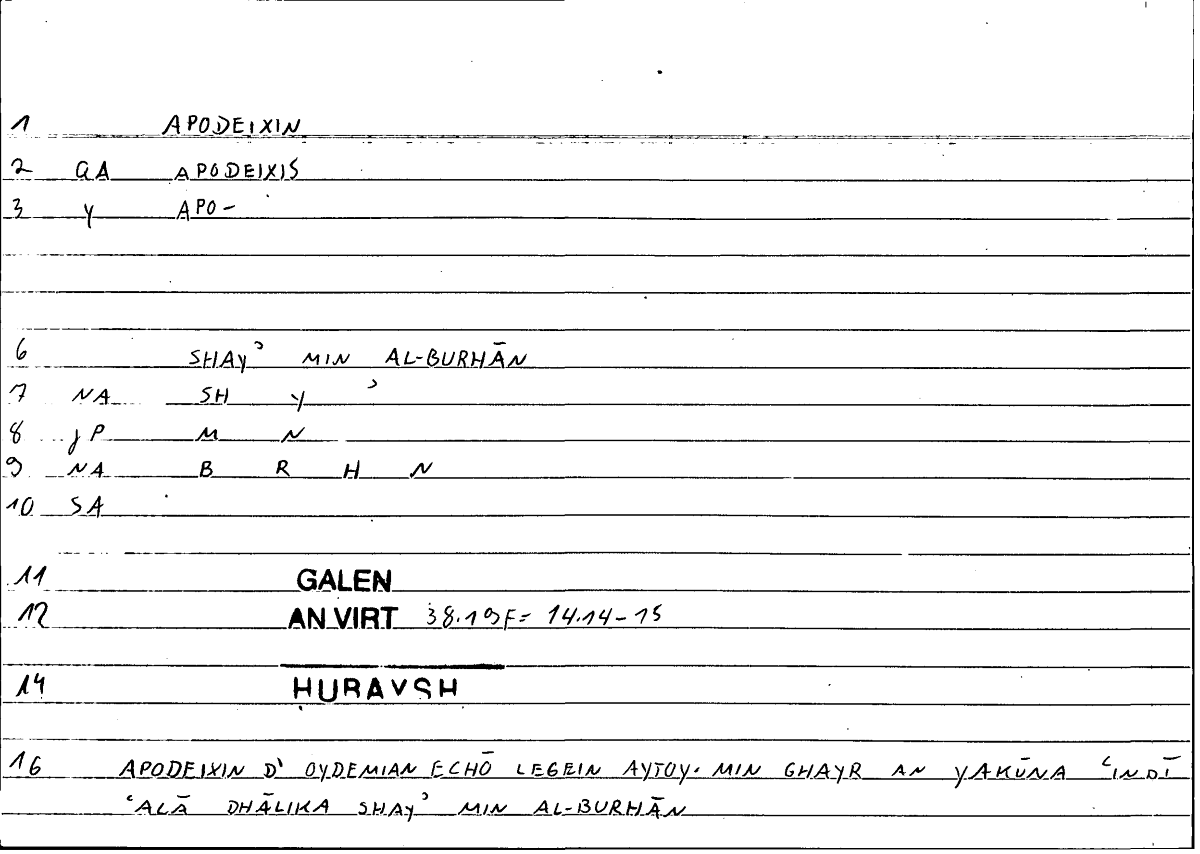 1 APODEIXIN
2 GA APODEIXIS
3 Y APO-
6 SHAYʾ MIN AL-BURHĀN
7 NA SH Y ʾ
8 JP M N
9 NA B R H N
10 SA
11 GALEN
12 AN VIRT 38.19F= 14.14-15
14 ḤUBAYSH
16 APODEIXIN D' OYDEMIAN ECHŌ LEGEIN AYTOY· MIN GHAYR AN YAKŪNA ʿINDĪ
ʿALĀ DHĀLIKA SHAYʾ MIN AL-BURHĀN